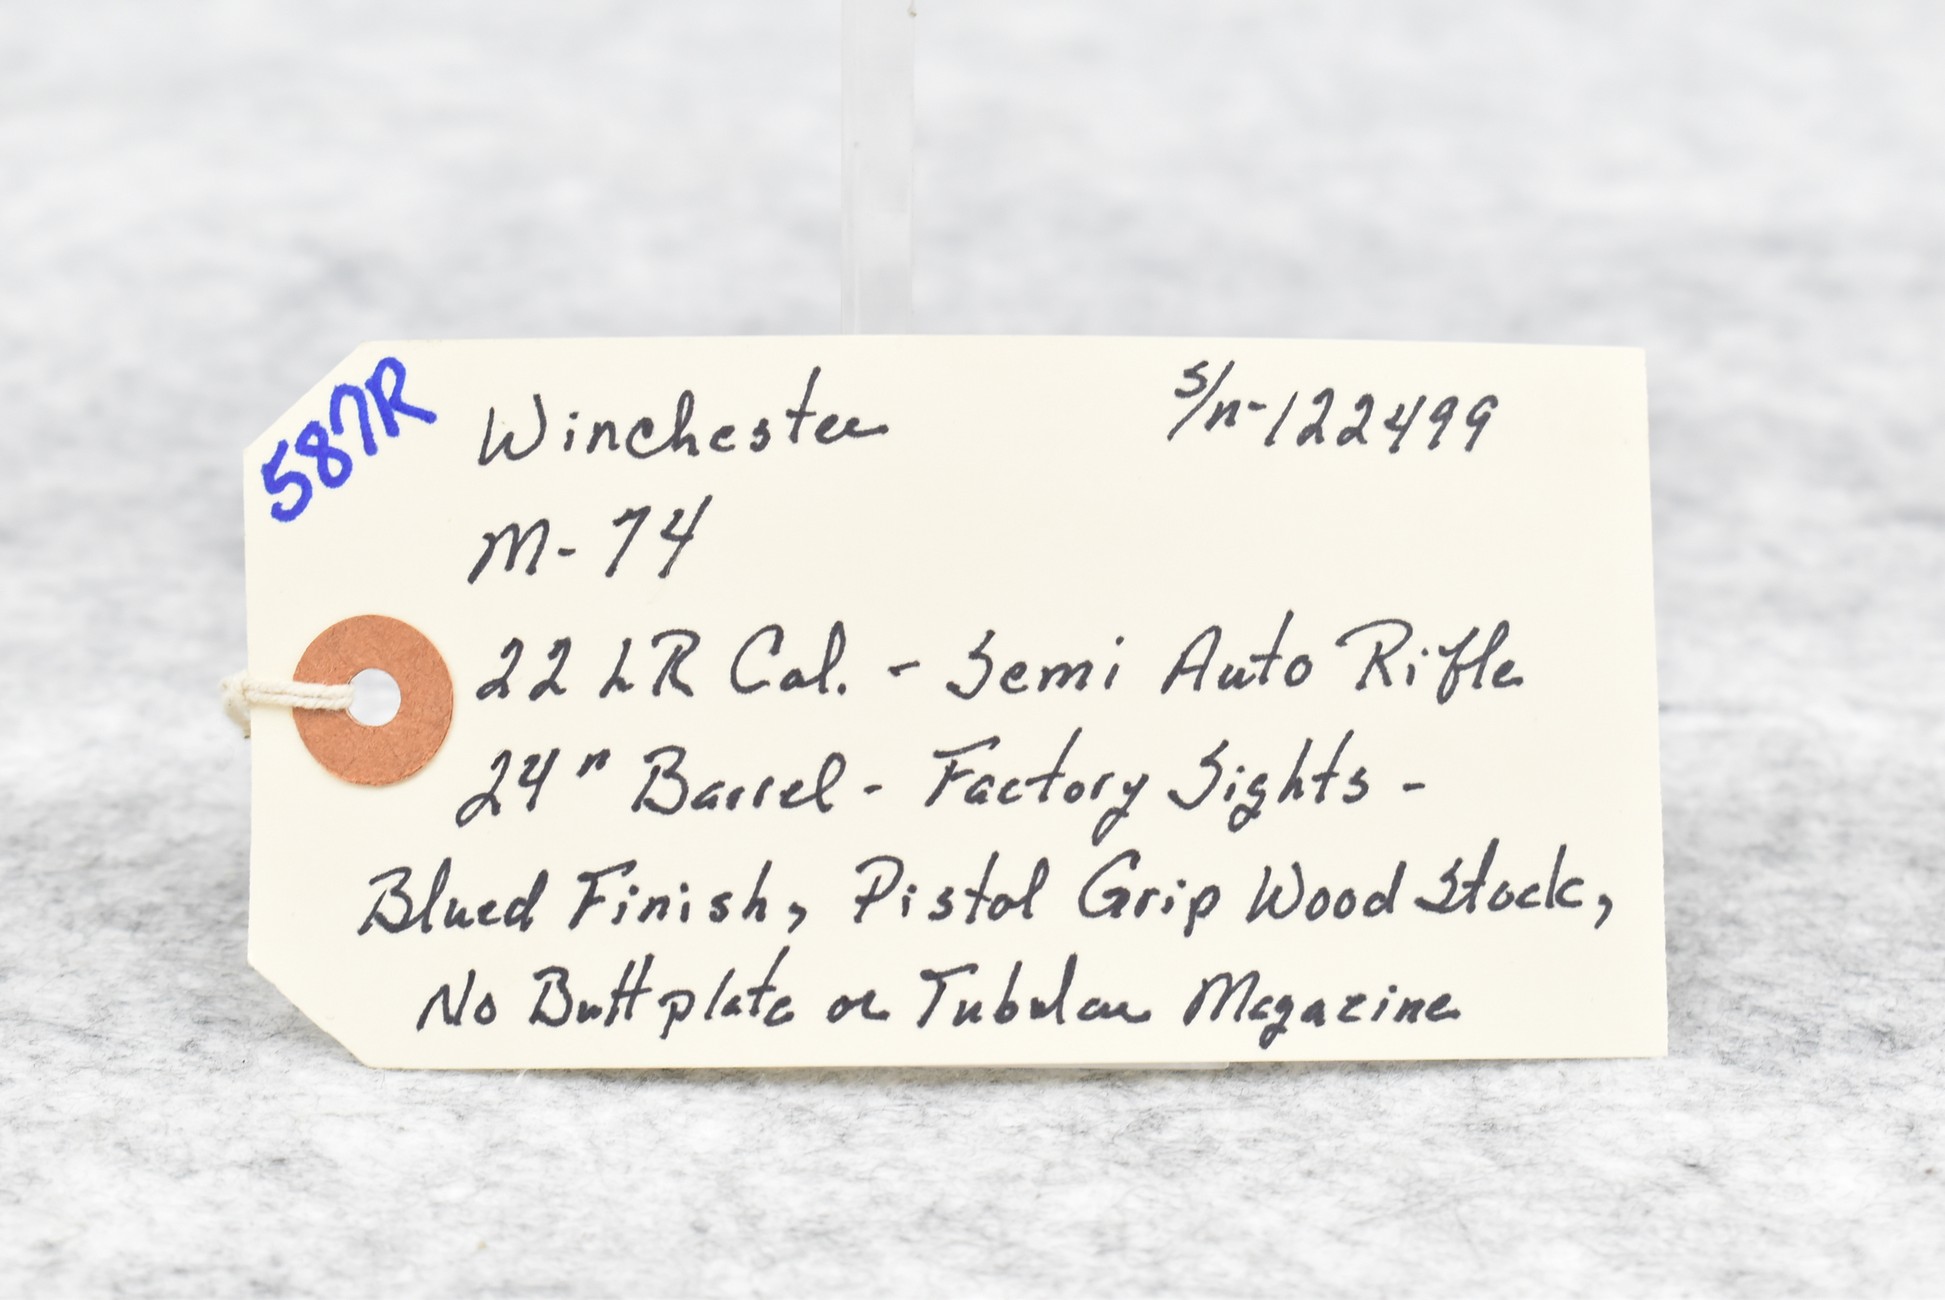 587R
Winchester s/n-122499
M-74
22 LR Cal. - Semi Auto Rifle
24" Barrel - Factory Sights -
Blued Finish, Pistol Grip Wood Stock,
No Buttplate or Tubular Magazine